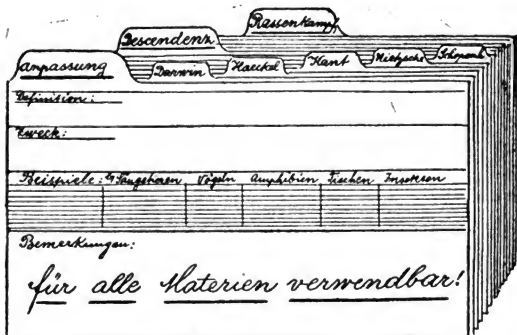 Rassenkampf
Descendenz
Anpassung Darwin Haeckel Kant Nietzsche Schopenh
Definition:
Zweck:
Beispiele: b/ Säugetieren Vögeln Amphibien Fischen Insekten
Bemerkungen:
für alle Materien verwendbar!